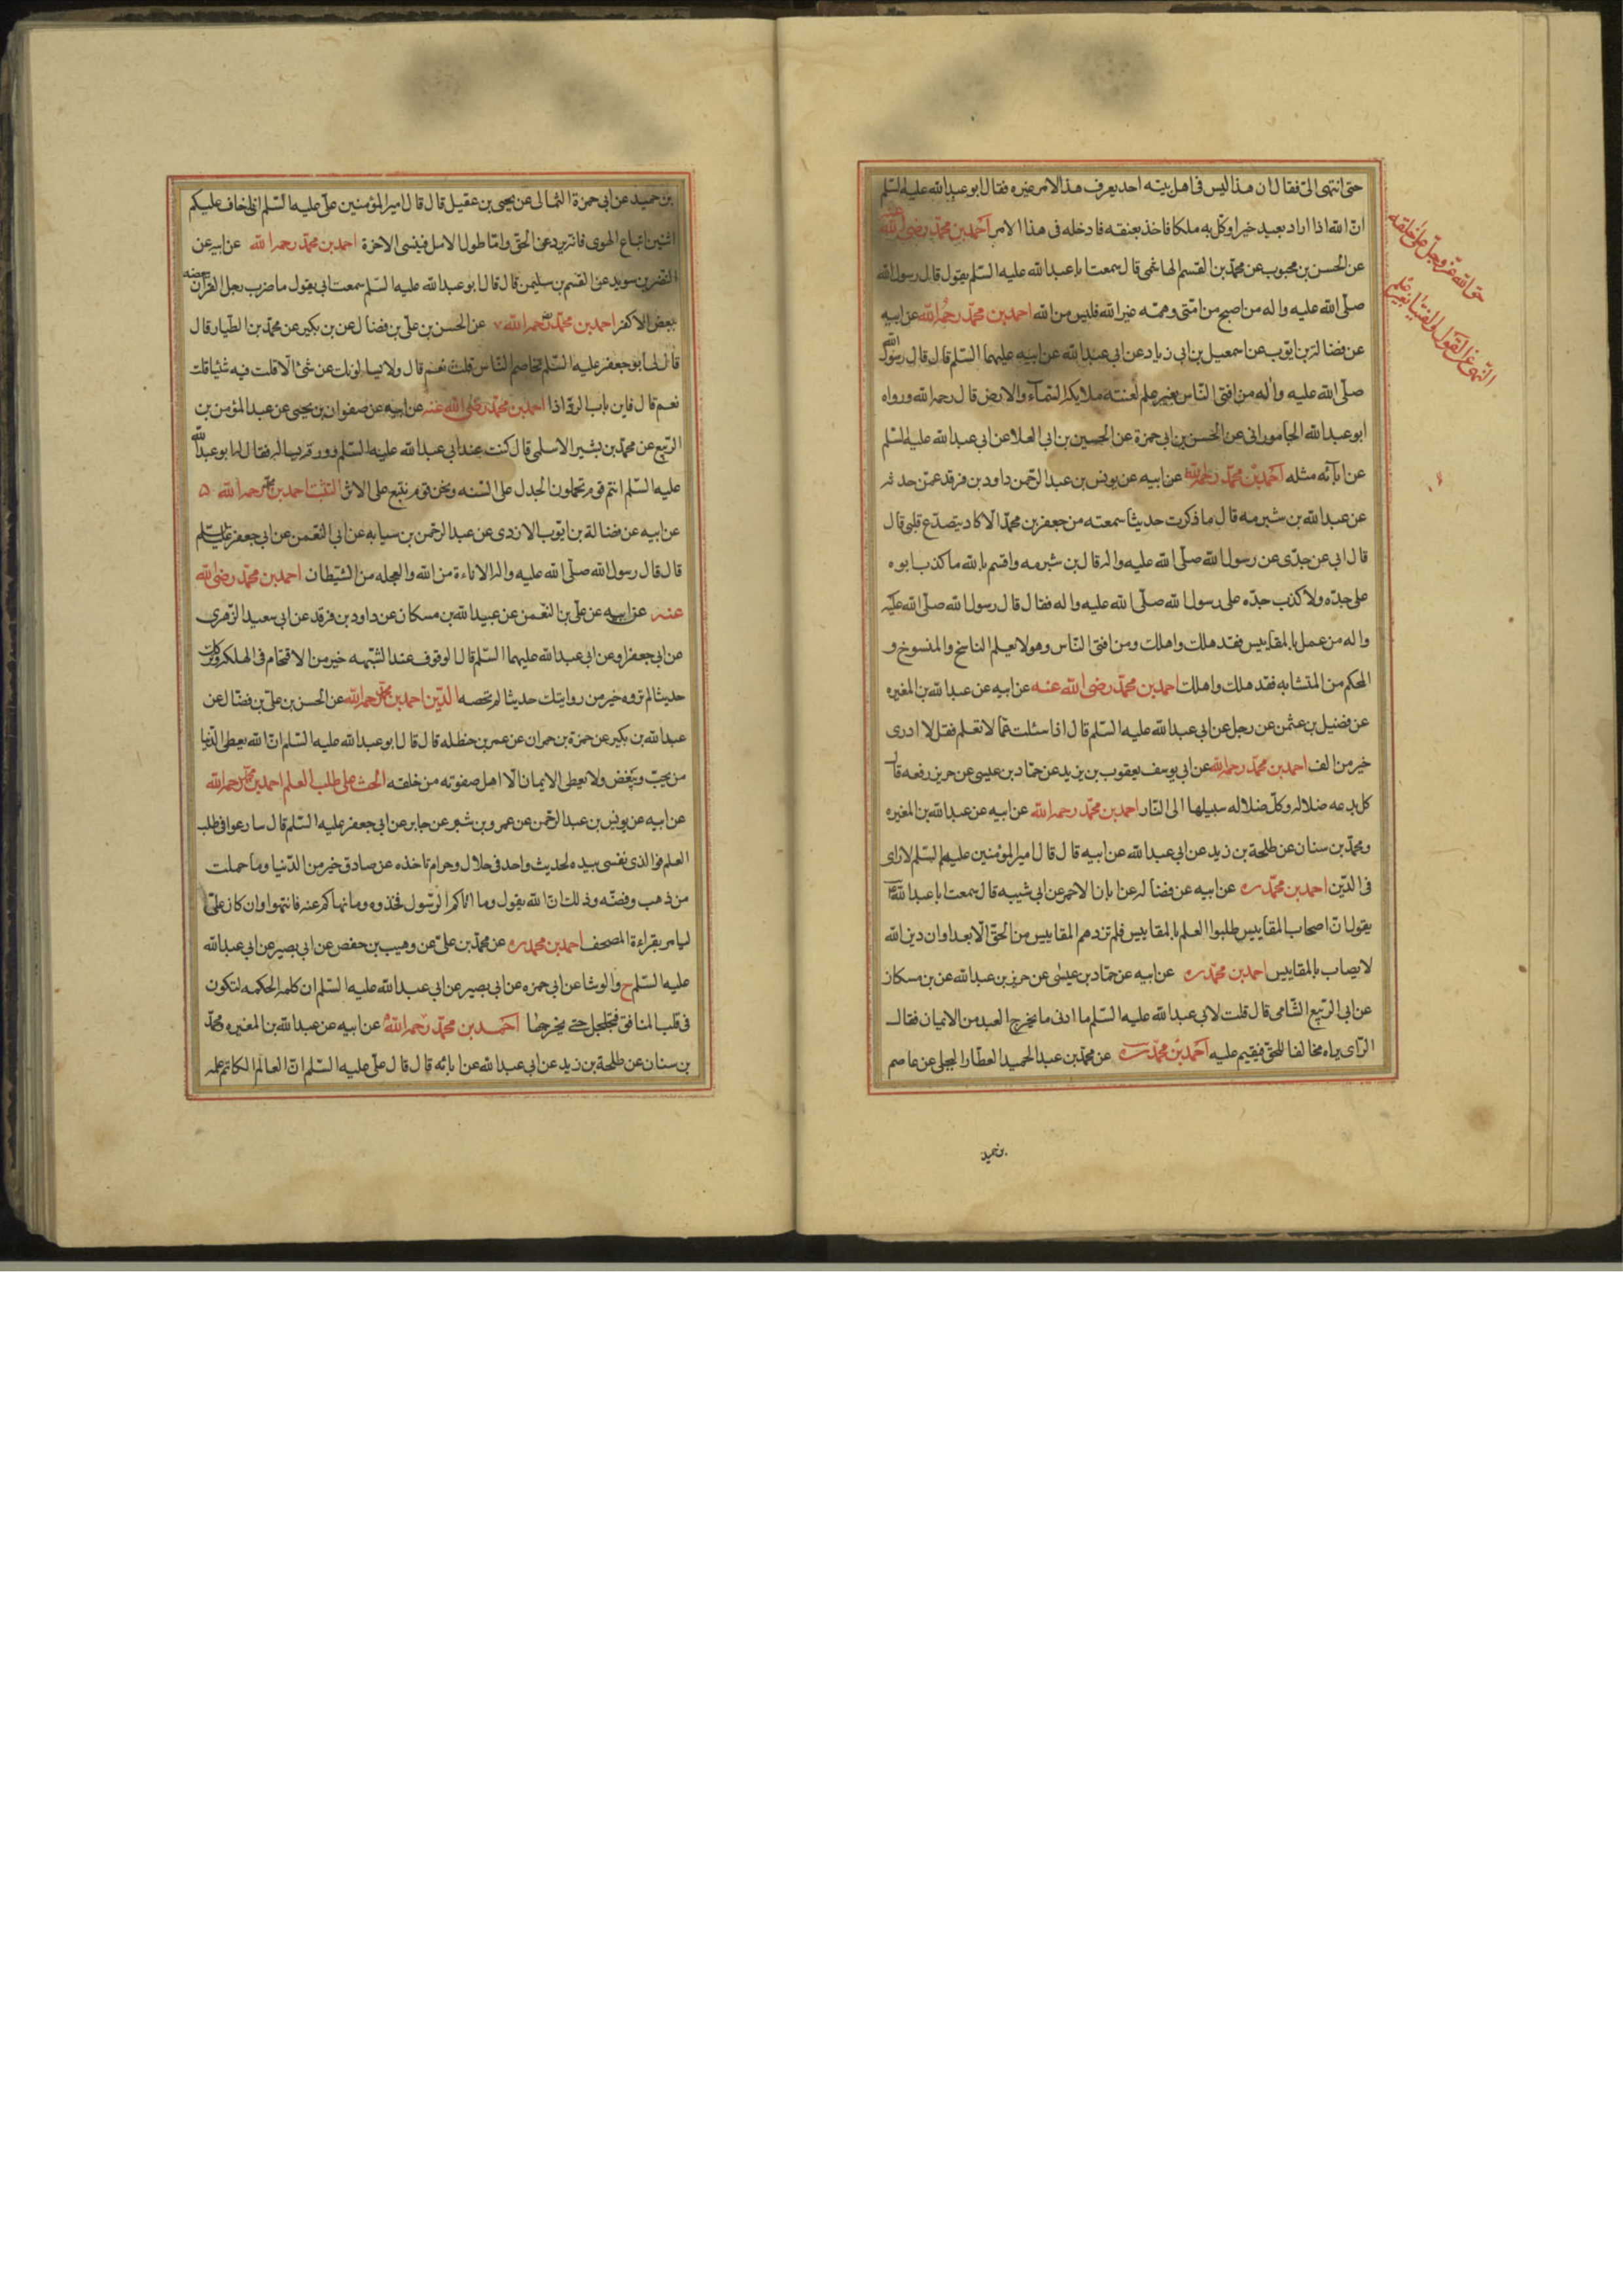 حتى انتهى الىّ فقال ان هذا ليس فى اهل بيته احد يعرف هذا الامر غيره فقال ابو عبد الله عليه السلم
انّ الله اذا اراد بعبد خيرا وكّل به ملكا فاخذ بعنقه فادخله فى هذا الامر احمد بن محمّد رضى الله عنه
حق الله عزّ وجلّ على خلقه
النهى عن القول والفتيا بغير علم
عن الحسن بن محبوب عن محمّد بن القسم الهاشمى قال سمعت ابا عبد الله عليه السّلم يقول قال رسول الله
صلّى الله عليه واله من اصبح من امّتى وهمّته غير الله فليس من الله احمد بن محمّد رحمه الله عن ابيه
عن فضالة بن ايّوب عن اسمعيل بن ابى زياد عن ابى عبد الله عن ابيه عليهما السّلم قال قال رسول الله
صلّى الله عليه واله من افتى النّاس بغير علم لعنته ملايكة السّماء والارض قال رحمه الله ورواه
ابو عبد الله الجامورانى عن الحسن بن ابى حمزة عن الحسين بن ابى العلا عن ابى عبد الله عليه السلم
عن ابائه مثله احمد بن محمّد رحمه الله عن ابيه عن يونس بن عبد الرّحمن داود بن فرقد عمّن حدثه
عن عبد الله بن شبرمه قال ما ذكرت حديثا سمعته من جعفر بن محمّد الّا كاد يتصدّع قلبى قال
قال ابى عن جدّى عن رسول الله صلّى الله عليه واله قال بن شبرمه واقسم بالله ما كذب ابوه
على جدّه ولا كذب جدّه على رسول الله صلّى الله عليه واله فقال قال رسول الله صلّى الله عليه
واله من عمل بالمقاييس فقد هلك واهلك ومن افتى النّاس وهو لا يعلم الناسخ والمنسوخ و
المحكم من المتشابه فقد هلك واهلك احمد بن محمّد رضى الله عنه عن ابيه عن عبد الله بن المغيره
عن فضيل بن عثمن عن رجل عن ابى عبد الله عليه السّلم قال اذا سئلت عمّا لا تعلم فقل لا ادرى
خير من الف احمد بن محمّد رحمه الله عن ابى يوسف يعقوب بن يزيد عن حمّاد بن عيسى عن حريز رفعه قال
كل بدعه ضلاله وكلّ ضلاله سبيلها الى النّار احمد بن محمّد رحمه الله عن ابيه عن عبد الله بن المغيره
ومحمّد بن سنان عن طلحة بن زيد عن ابى عبد الله عن ابيه قال قال امير المؤمنين عليهم السلم لا راى
فى الدّين احمد بن محمّد ره عن ابيه عن فضاله عن ابان الاحمر عن ابى شيبه قال سمعت ابا عبد الله ع
يقول انّ اصحاب المقاييس طلبوا العلم بالمقاييس فلم تزدهم المقاييس من الحقّ الّا بعدا وان دين الله
لا يصاب بالمقاييس احمد بن محمّد ره عن ابيه عن حمّاد بن عيسى عن حريز بن عبد الله عن بن مسكان
عن ابى الرّبيع الشّامى قال قلت لابى عبد الله عليه السّلم ما ادنى ما يخرج العبد من الايمان فقال
الرّاى يراه مخالفا للحقّ فيقيم عليه احمد بن محمّد ره عن محمّد بن عبد الحميد العطّار البجلى عن عاصم
بن حميد
بن حميد عن ابى حمزة الثمالى عن يحيى بن عقيل قال قال امير المؤمنين علىّ عليه السّلم انى اخاف عليكم
اثنين اتباع الهوى فانه يرد عن الحقّ وامّا طول الامل فينسى الاخرة احمد بن محمّد رحمه الله عن ابيه عن
النضر بن سويد عن القسم بن سليمن قال قال ابو عبد الله عليه السّلم سمعت ابى يقول ما ضرب رجل القران بعضه
ببعض الّا كفر احمد بن محمّد رحمه الله عن الحسن بن علىّ بن فضال عن بن بكير عن محمّد بن الطيار قال
قال لى ابو جعفر عليه السّلم تخاصم النّاس قلت نعم قال ولا يسالونك عن شئ الّا قلت فيه شيئا قلت
نعم قال فاين باب الردّ اذا احمد بن محمّد رضى الله عنه عن ابيه عن صفوان بن يحيى عن عبد المؤمن بن
الرّبيع عن محمّد بن بشير الاسلمى قال كنت عند ابى عبد الله عليه السّلم وورقه يساله فقال له ابو عبد الله
عليه السّلم انتم قوم تحملون الجدل على السّنه ونحن قوم نتبع على الاثر التثبت احمد بن محمّد رحمه الله
عن ابيه عن فضالة بن ايّوب الازدى عن عبد الرحمن بن سيابه عن ابى النّعمن عن ابى جعفر عليه السلم
قال قال رسول الله صلّى الله عليه واله الاناءة من الله والعجله من الشيطان احمد بن محمّد رضى الله
عنه عن ابيه عن علىّ بن النعّمن عن عبيد الله بن مسكان عن داود بن فرقد عن ابى سعيد الزّهرى
عن ابى جعفر او عن ابى عبد الله عليهما السّلم قال الوقوف عند الشّبهه خير من الاقتحام فى الهلكه وترك
حديثا لم تروه خير من روايتك حديثا لم تحصه الدّين احمد بن محمّد رحمه الله عن الحسن بن علىّ بن فضّال عن
عبد الله بن بكير عن حمزة بن حمران عن عمر بن حنظله قال قال ابو عبد الله عليه السّلم انّ الله يعطى الدّنيا
من يحبّ ويبغض ولا يعطى الايمان الّا اهل صفوته من خلقه الحث على طلب العلم احمد بن محمّد رحمه الله
عن ابيه عن يونس بن عبد الرّحمن عن عمرو بن شمر عن جابر عن ابى جعفر عليه السّلم قال سارعوا فى طلب
العلم فو الذى نفسى بيده لحديث واحد فى حلال وحرام تاخذه عن صادق خير من الدّنيا وما حملت
من ذهب وفضّه وذلك انّ الله يقول وما اتاكم الرّسول فخذوه وما نهاكم عنه فانتهوا وان كان علىّ
ليامر بقراءة المصحف احمد بن محمد ره عن محمّد بن علىّ عن وهيب بن حفص عن ابى بصير عن ابى عبد الله
عليه السّلم ح والوشا عن ابى حمزه عن ابى بصير عن ابى عبد الله عليه السّلم ان كلمة الحكمه لتكون
فى قلب المنافق فتجلجل حتى يخرجها احمد بن محمّد رحمه الله عن ابيه عن عبد الله بن المغيره ومحمّد
بن سنان عن طلحة بن زيد عن ابى عبد الله عن ابائه قال قال علىّ عليه السّلم انّ العالم الكاتم علمه